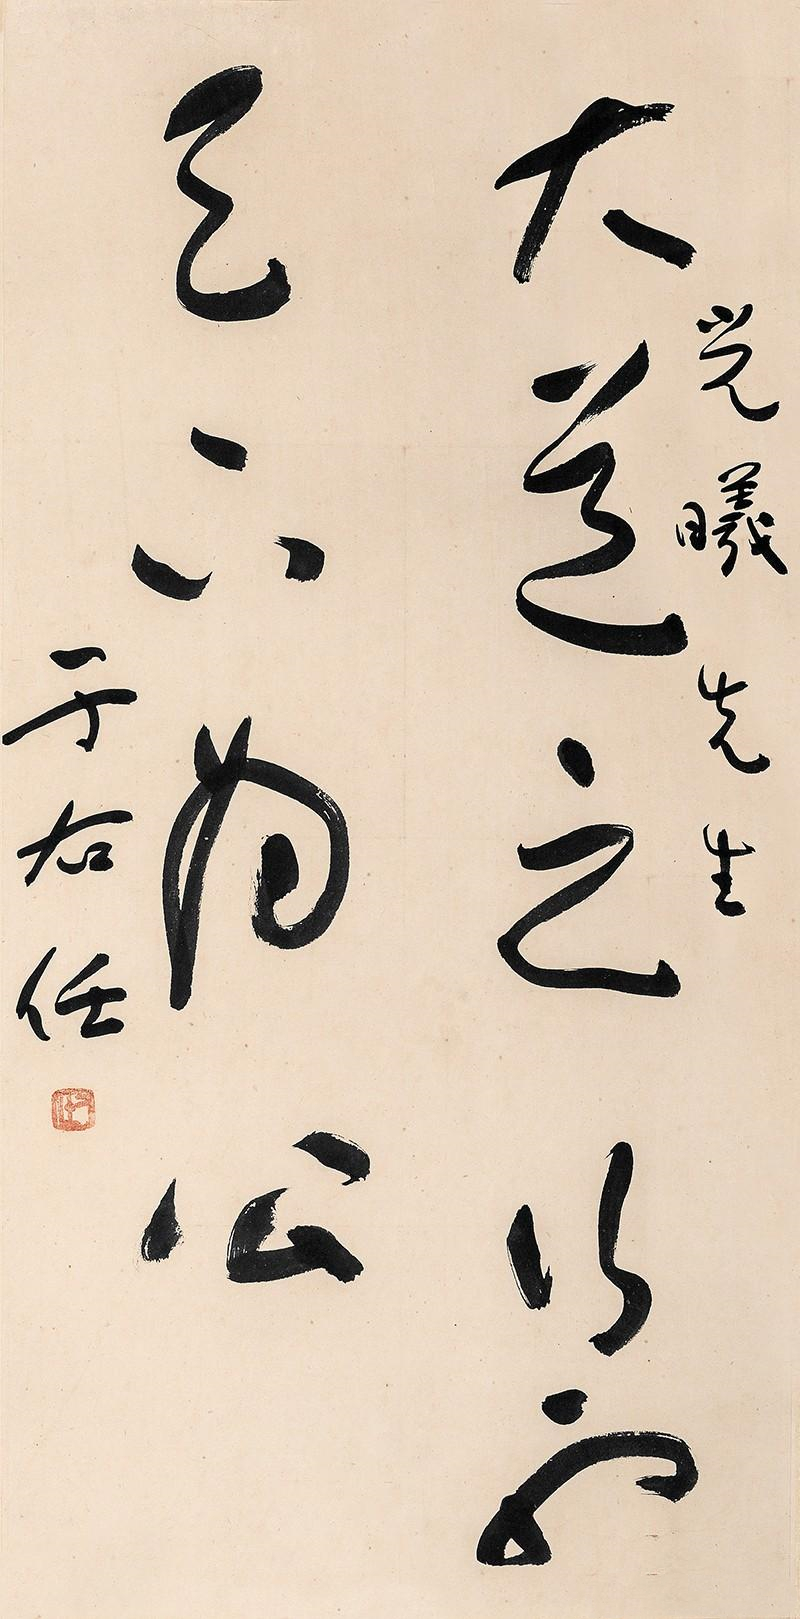 光曦先生
大道之行也
天下為公
于右任
右任